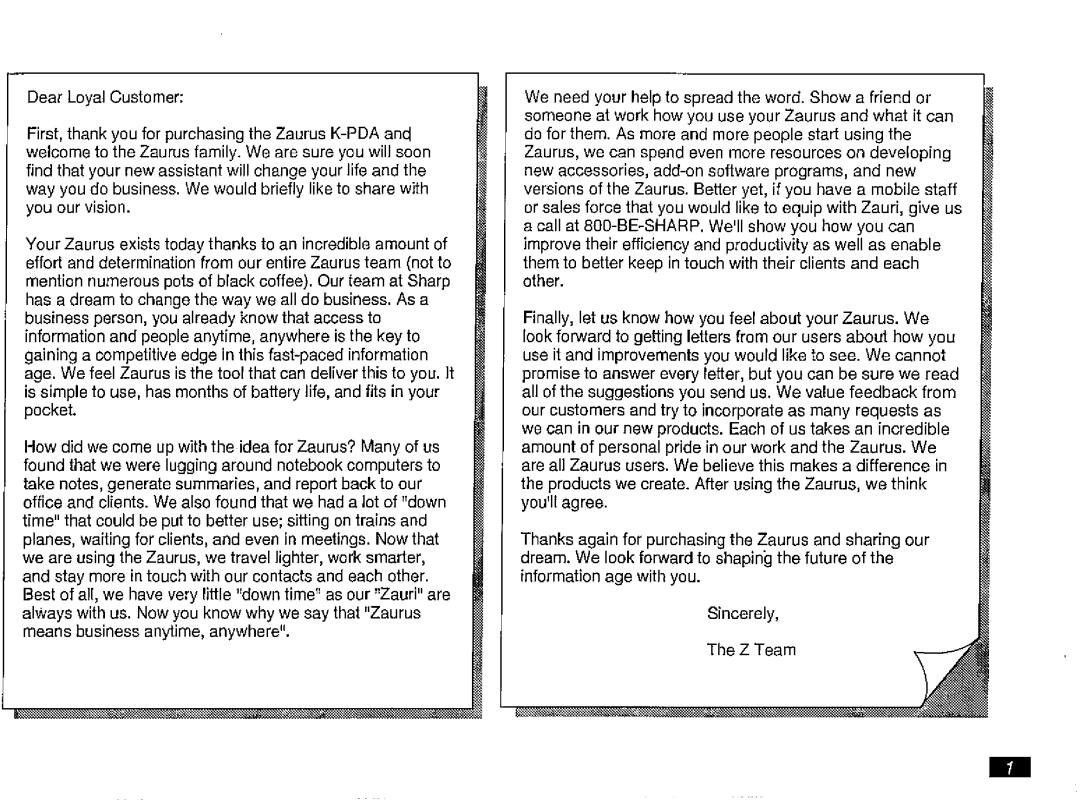 Dear Loyal Customer:
First, thank you for purchasing the Zaurus K-PDA and
welcome to the Zaurus family. We are sure you will soon
find that your new assistant will change your life and the
way you do business. We would briefly like to share with
you our vision.
Your Zaurus exists today thanks to an incredible amount of
effort and determination from our entire Zaurus team (not to
mention numerous pots of black coffee). Our team at Sharp
has a dream to change the way we all do business. As a
business person, you already know that access to
information and people anytime, anywhere is the key to
gaining a competitive edge in this fast-paced information
age. We feel Zaurus is the tool that can deliver this to you. It
is simple to use, has months of battery life, and fits in your
pocket.
How did we come up with the idea for Zaurus? Many of us
found that we were lugging around notebook computers to
take notes, generate summaries, and report back to our
office and clients. We also found that we had a lot of "down
time" that could be put to better use; sitting on trains and
planes, waiting for clients, and even in meetings. Now that
we are using the Zaurus, we travel lighter, work smarter,
and stay more in touch with our contacts and each other.
Best of all, we have very little "down time" as our "Zauri" are
always with us. Now you know why we say that "Zaurus
means business anytime, anywhere".
We need your help to spread the word. Show a friend or
someone at work how you use your Zaurus and what it can
do for them. As more and more people start using the
Zaurus, we can spend even more resources on developing
new accessories, add-on software programs, and new
versions of the Zaurus. Better yet, if you have a mobile staff
or sales force that you would like to equip with Zauri, give us
a call at 800-BE-SHARP. We'll show you how you can
improve their efficiency and productivity as well as enable
them to better keep in touch with their clients and each
other.
Finally, let us know how you feel about your Zaurus. We
look forward to getting letters from our users about how you
use it and improvements you would like to see. We cannot
promise to answer every letter, but you can be sure we read
all of the suggestions you send us. We value feedback from
our customers and try to incorporate as many requests as
we can in our new products. Each of us takes an incredible
amount of personal pride in our work and the Zaurus. We
are all Zaurus users. We believe this makes a difference in
the products we create. After using the Zaurus, we think
you'll agree.
Thanks again for purchasing the Zaurus and sharing our
dream. We look forward to shaping the future of the
information age with you.
Sincerely,
The Z Team
1